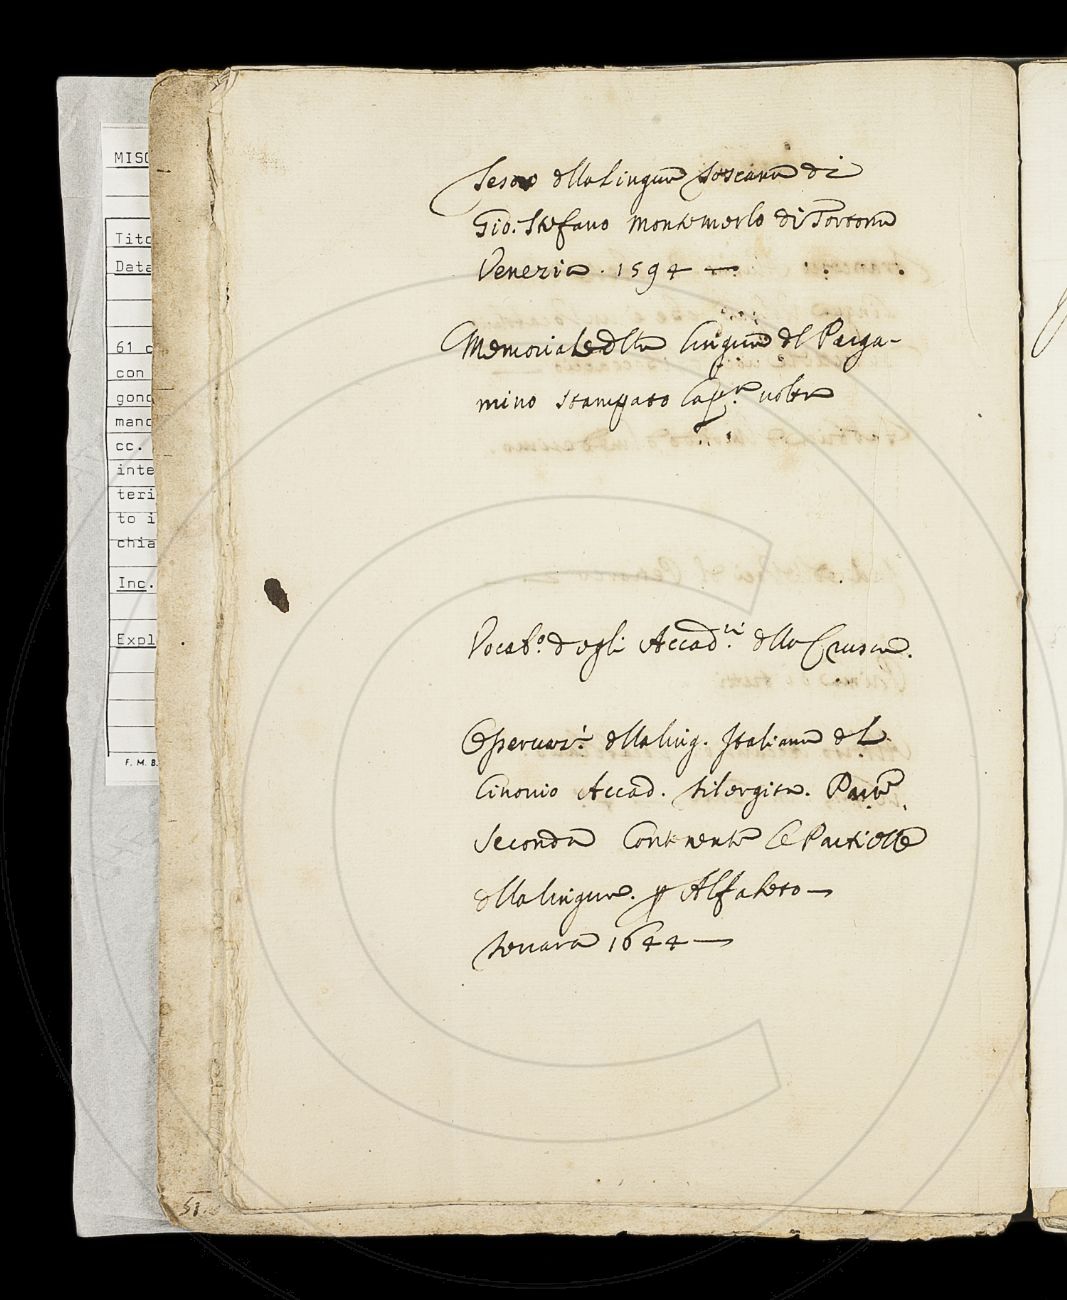 MISC
Tito
Data
61 c
con
gond
mand
cc.
inte
teri
to i
chia
Inc.
Expl
F. M. B.
Tesoro della Lingua Toscana di
Gio. Stefano Montemerlo di Tortona
Venezia . 1594 —
Memoriale della lingua del Perga-
mino stampato volte
Vocab.o degli Accad.ci della Crusca.
Osservaz.i della ling. Italiana del
Cinonio Accad. Filergita. Parte
Seconda Contenente le Particelle
della lingua. p Alfabeto —
Ferrara 1644 —
51